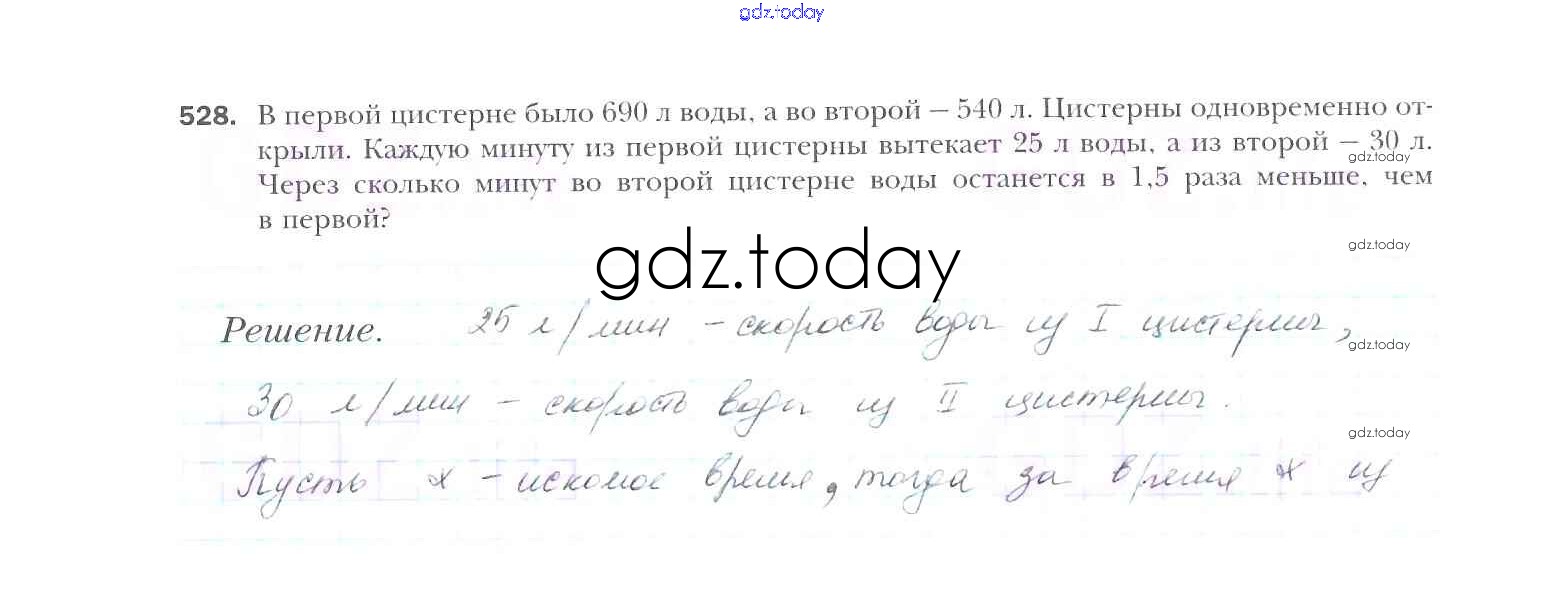 gdz.today
528. В первой цистерне было 690 л воды, а во второй – 540 л. Цистерны одновременно от-
крыли. Каждую минуту из первой цистерны вытекает 25 л воды, а из второй – 30 л.
gdz.today
Через сколько минут во второй цистерне воды останется в 1,5 раза меньше, чем
в первой?
gdz.today
gdz.today
Решение. 25 л/мин – скорость воды из I цистерны,
gdz.today
30 л/мин – скорость воды из II цистерны.
gdz.today
Пусть x – искомое время, тогда за время x из